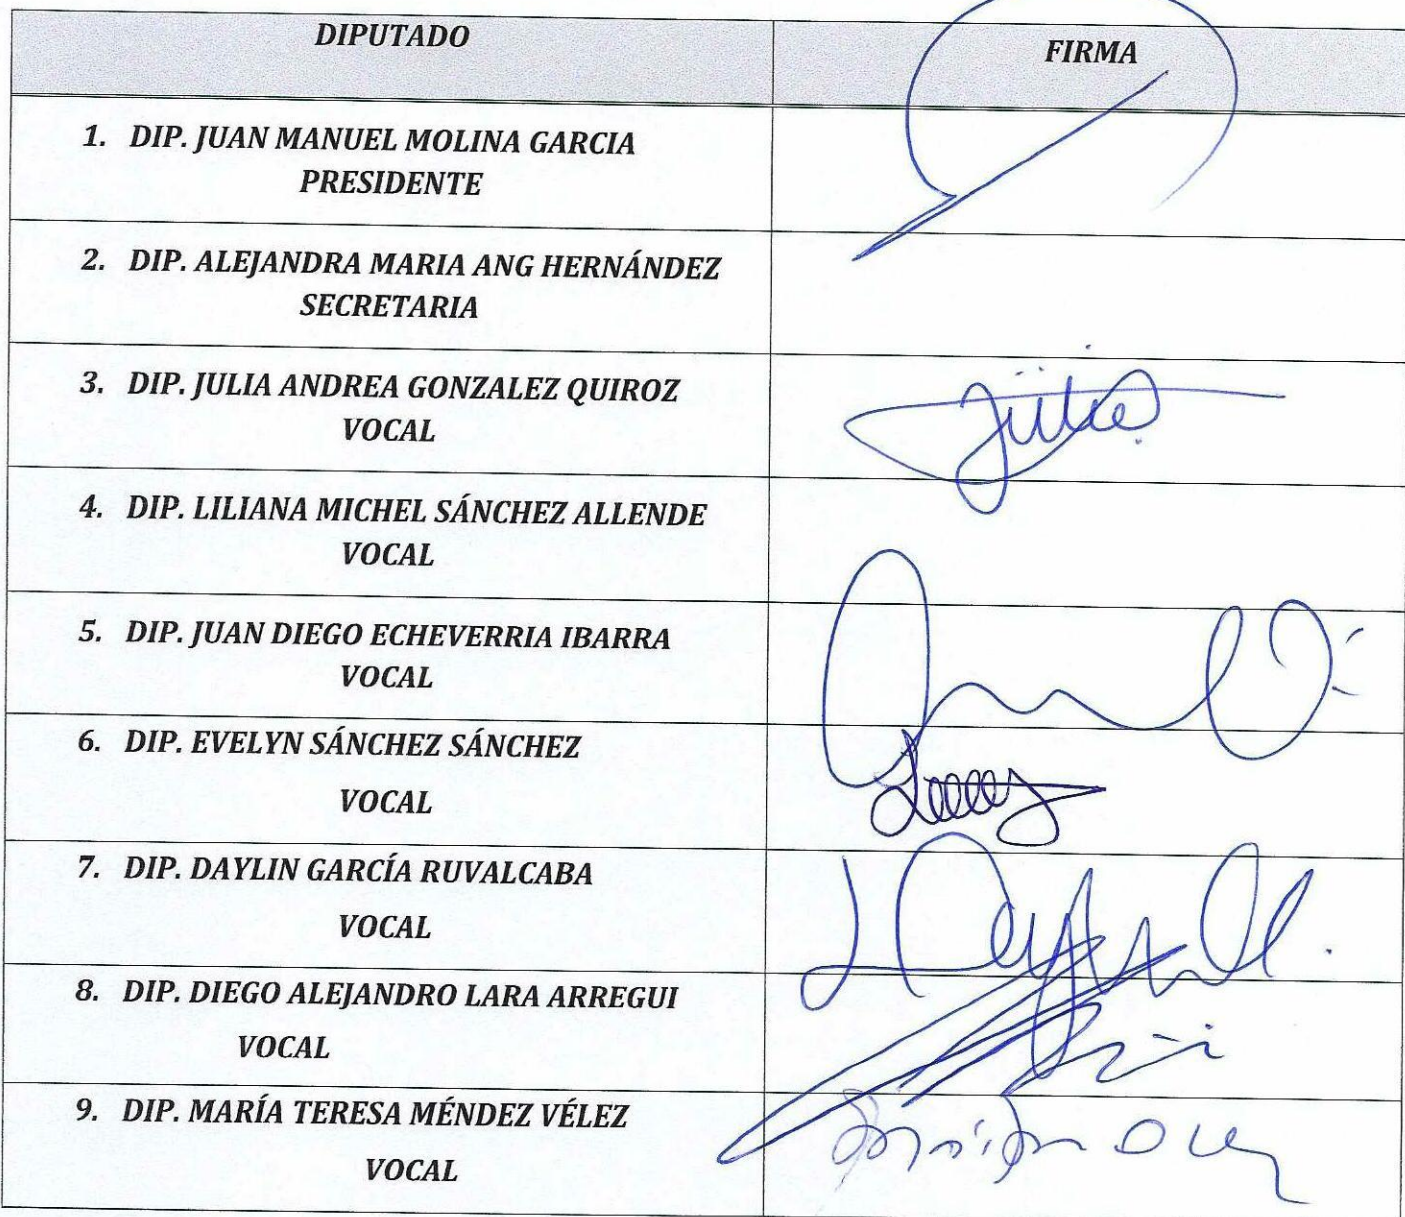 DIPUTADO FIRMA
1. DIP. JUAN MANUEL MOLINA GARCIA
PRESIDENTE
2. DIP. ALEJANDRA MARIA ANG HERNÁNDEZ
SECRETARIA
3. DIP. JULIA ANDREA GONZALEZ QUIROZ
VOCAL
4. DIP. LILIANA MICHEL SÁNCHEZ ALLENDE
VOCAL
5. DIP. JUAN DIEGO ECHEVERRIA IBARRA
VOCAL
6. DIP. EVELYN SÁNCHEZ SÁNCHEZ
VOCAL
7. DIP. DAYLIN GARCÍA RUVALCABA
VOCAL
8. DIP. DIEGO ALEJANDRO LARA ARREGUI
VOCAL
9. DIP. MARÍA TERESA MÉNDEZ VÉLEZ
VOCAL